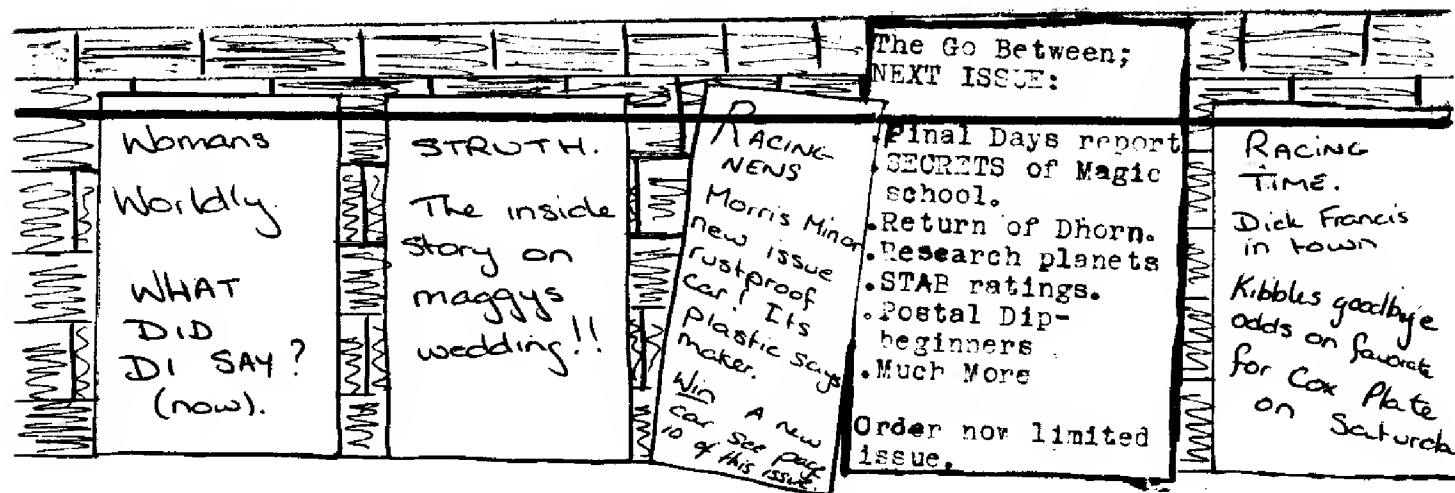 Womans
Worldly.
WHAT
DID
DI SAY?
(now).
STRUTH.
The inside
story on
maggys
wedding!!
RACING
NEWS
Morris Minor
new issue
rustproof
car! Its
plastic says
maker.
Win A new
car see page
10 of this issue.
The Go Between;
NEXT ISSUE:
.Final Days report
.SECRETS of Magic
school.
.Return of Dhorn.
.Research planets
.STAB ratings.
.Postal Dip-
beginners
.Much More
Order now limited
issue.
RACING
TIME.
Dick Francis
in town
Kibbles goodbye
odds on favorate
for Cox Plate
on Saturda